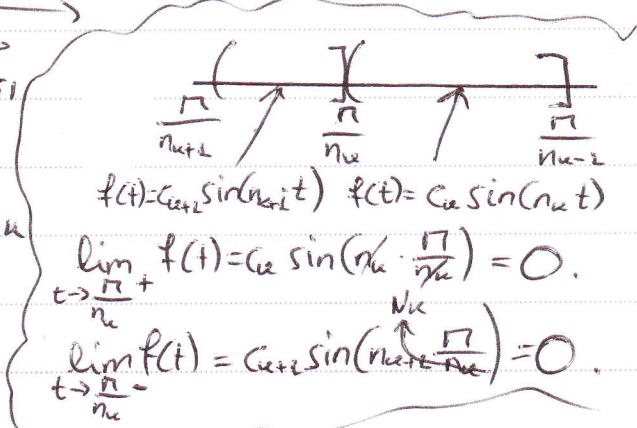 ( ]( ]
π/n_{k+1} π/n_k π/n_{k-1}
f(t)=c_{k+1} sin(n_{k+1}t) f(t)= c_k sin(n_k t)
lim_{t→π/n_k +} f(t)=c_k sin(n_k · π/n_k) = 0.
N_k
lim_{t→π/n_k -} f(t) = c_{k+1} sin(n_{k+1} π/n_k) = 0.